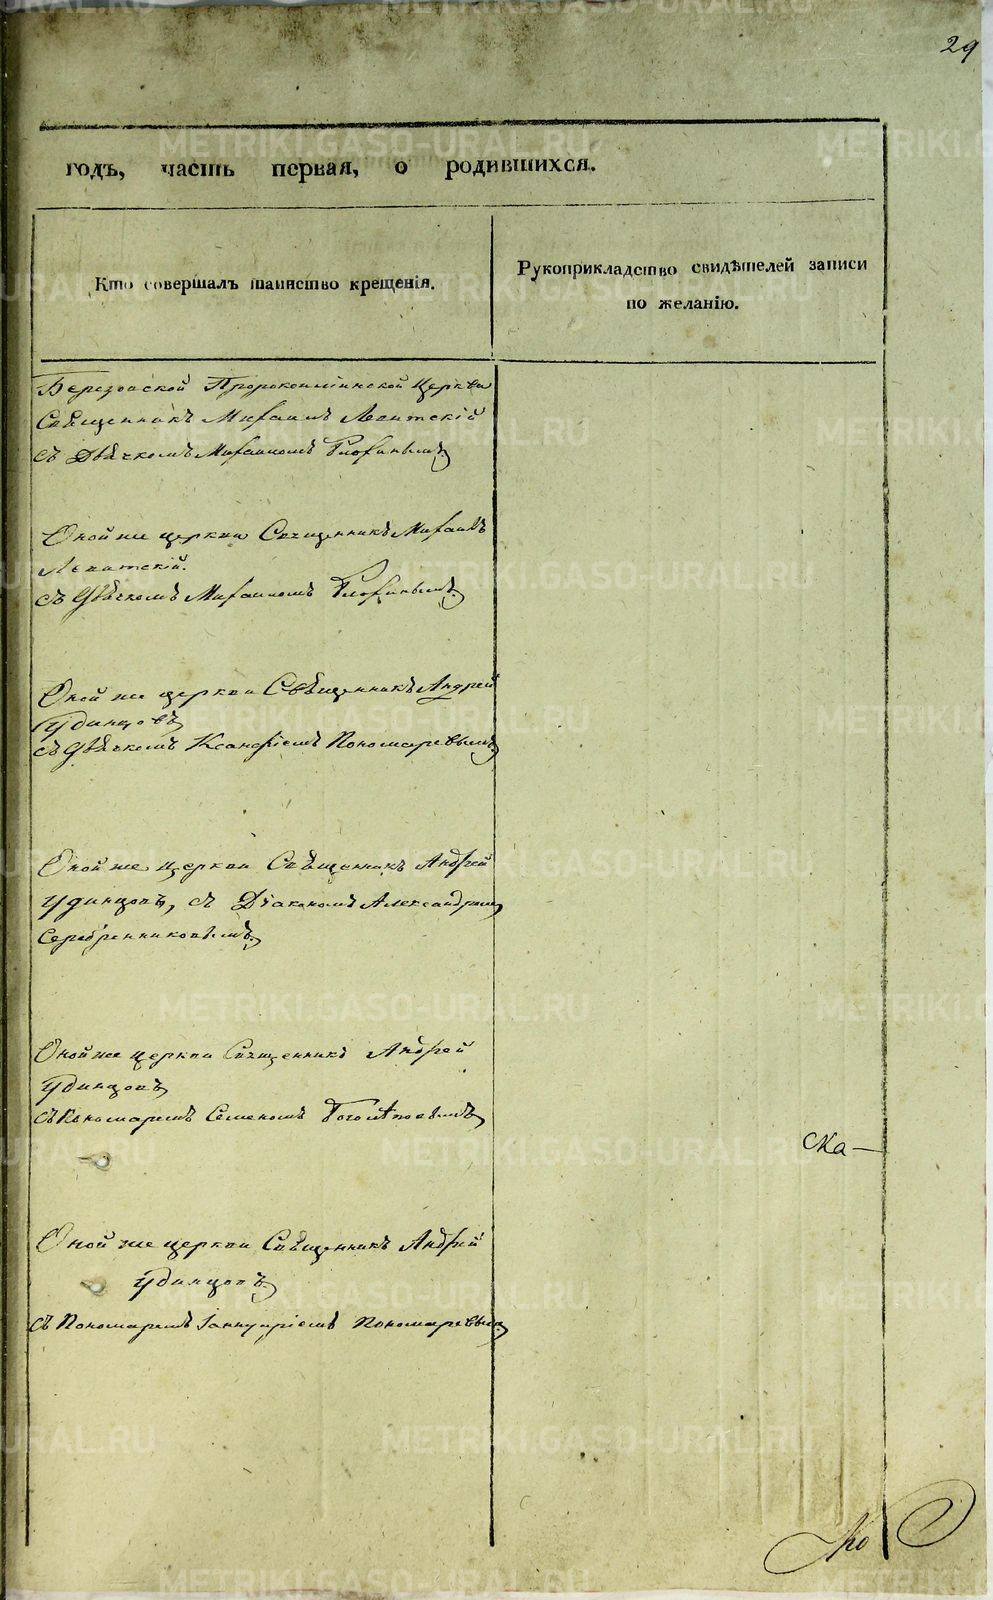 29
годъ, часть первая, о родившихся.
Кто совершалъ таинство крещенія.
Рукоприкладство свидѣтелей записи
по желанію.
Березовской Пророкоильинской Церкви
Священникъ Михаилъ Левитскій
съ Дьячкомъ Михаиломъ
Оной же церкви Священникъ Михаилъ
Левитскій.
съ Дьячкомъ Михаиломъ
Оной же церкви Священникъ Андрей
Удинцовъ
съ Дьячкомъ Ксанфіемъ Пономаревымъ
Оной же церкви Священникъ Андрей
Удинцовъ, съ Діакономъ Александромъ
Серебренниковымъ.
Оной же церкви Священникъ Андрей
Удинцовъ
съ Пономаремъ Семеномъ Боголѣповымъ
Ска-
Оной же церкви Священникъ Андрей
Удинцовъ
съ Пономаремъ Іаннуаріемъ Пономаревымъ
METRIKI.GASO-URAL.RU